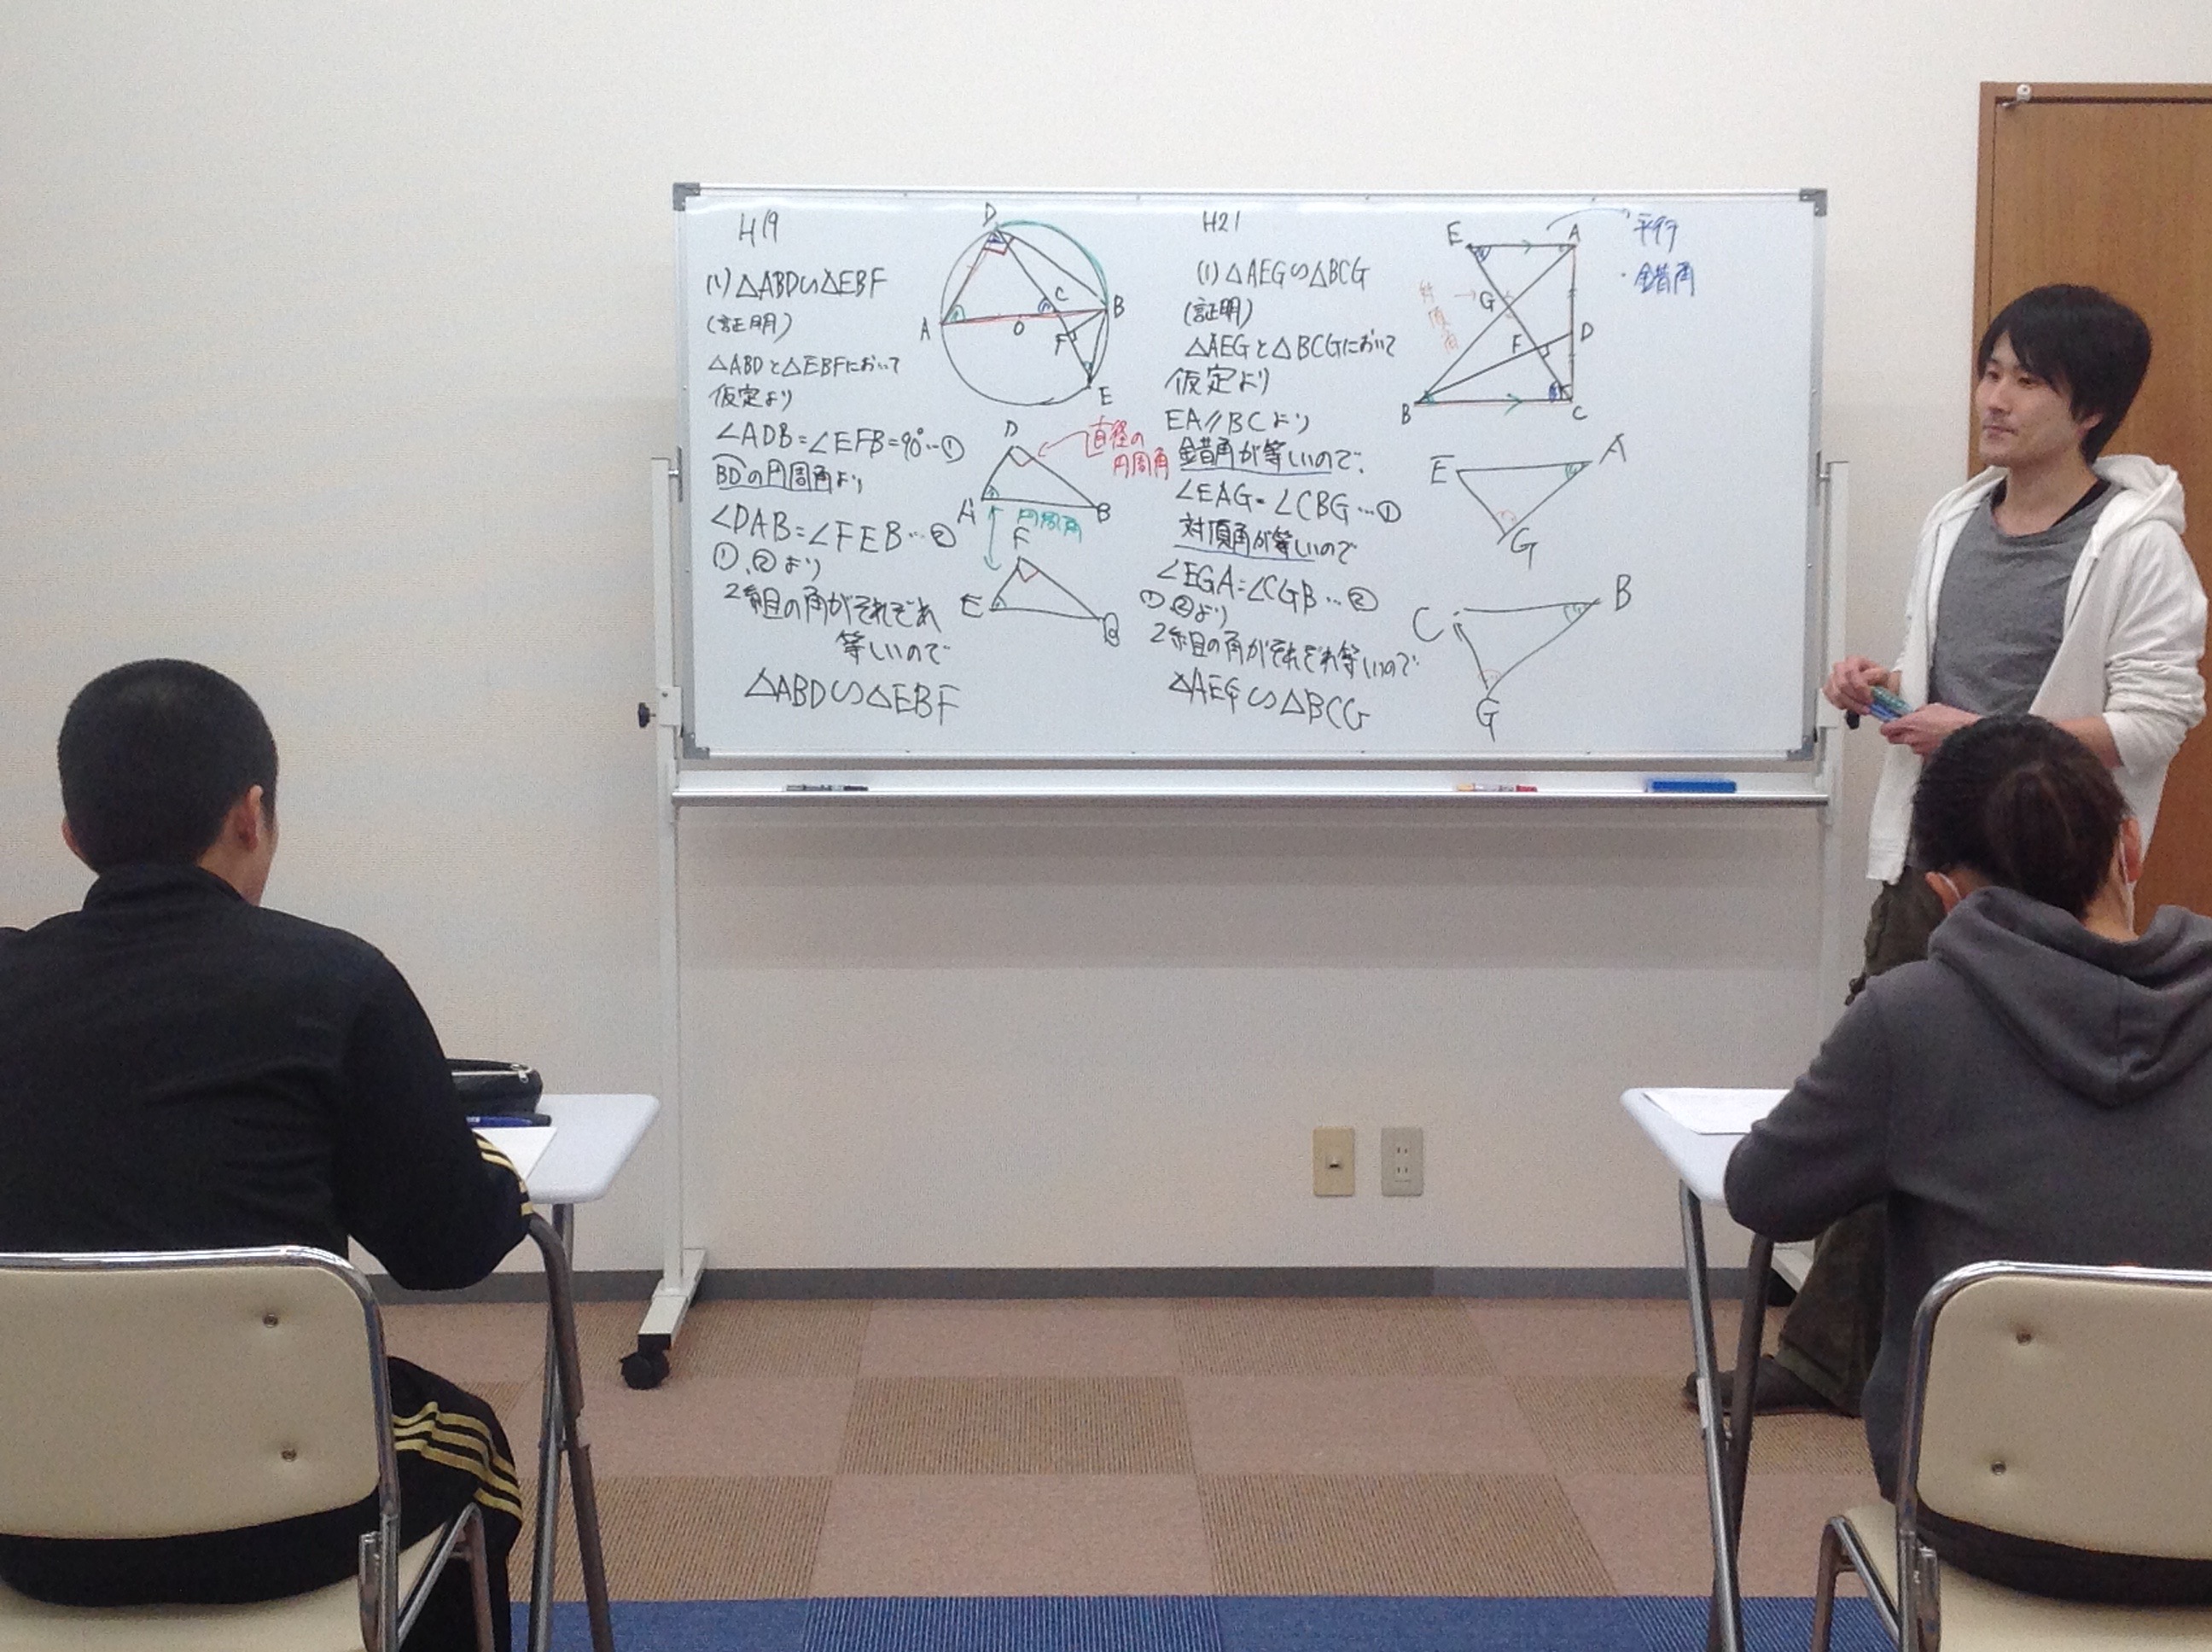 H19
(1) △ABD∽△EBF
(証明)
△ABDと△EBFにおいて
仮定より
∠ADB=∠EFB=90°…①
BDの円周角より
∠DAB=∠FEB…②
①、②より
2組の角がそれぞれ
等しいので
△ABD∽△EBF
D
A
O
C
B
F
E
D
直径の
円周角
A
B
円周角
F
E
B
H21
(1) △AEG∽△BCG
(証明)
△AEGと△BCGにおいて
仮定より
EA∥BCより
錯角が等しいので、
∠EAG=∠CBG…①
対頂角が等しいので
∠EGA=∠CGB…②
①②より
2組の角がそれぞれ等しいので
△AEG∽△BCG
E
A
平行
・錯角
対頂角
G
F
D
B
C
E
A
G
C
B
G